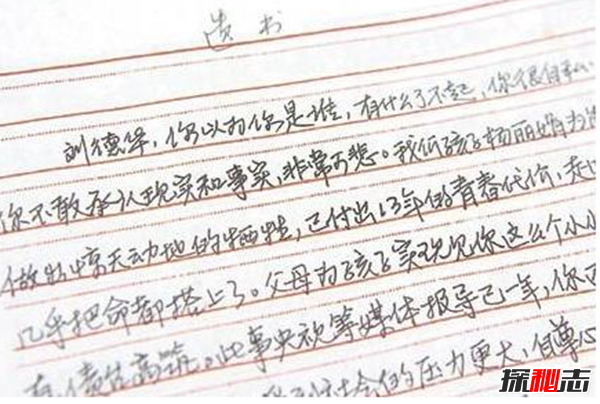 遗书
刘德华,你以为你是谁,有什么了不起,你很自私
你不敢承认现实和事实,非常可悲。我们孩子杨丽娟为
做出惊天动地的牺牲,已付出13年的青春代价,走
几乎把命都搭上了。父母为孩子实现见你这么个小小
债台高筑。此事央视等媒体报导已一年,你
的压力更大,自尊心
探秘志